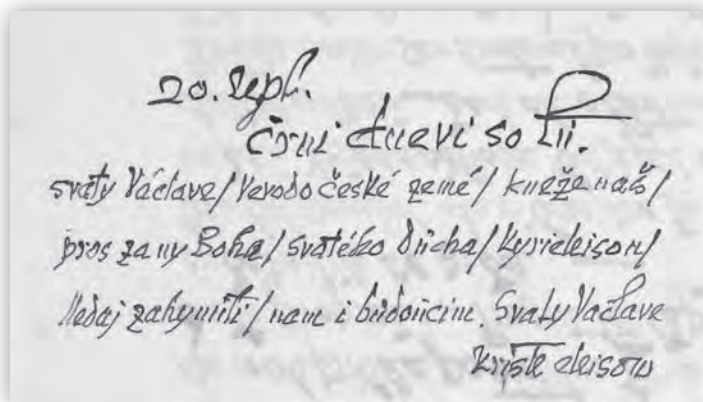 20. Sept.
svatý Václave/ Vevodo české zemé/ kneže naš/
pros za ny Boha/ svatého ducha/ Kyrieleison/
Nedaj zahynúti/ nam i búdoúcim. Svatý Václave
Kriste eleison